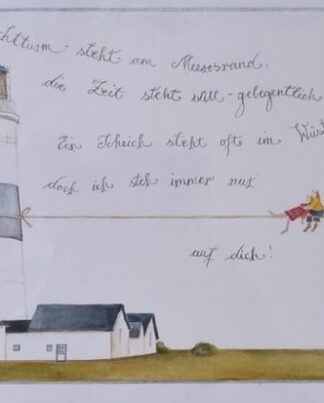 chtturm steht am Meeresrand,
die Zeit steht still - gelegentlich
Ein Scheich steht oft im Wüst
doch ich steh immer nur
auf dich!